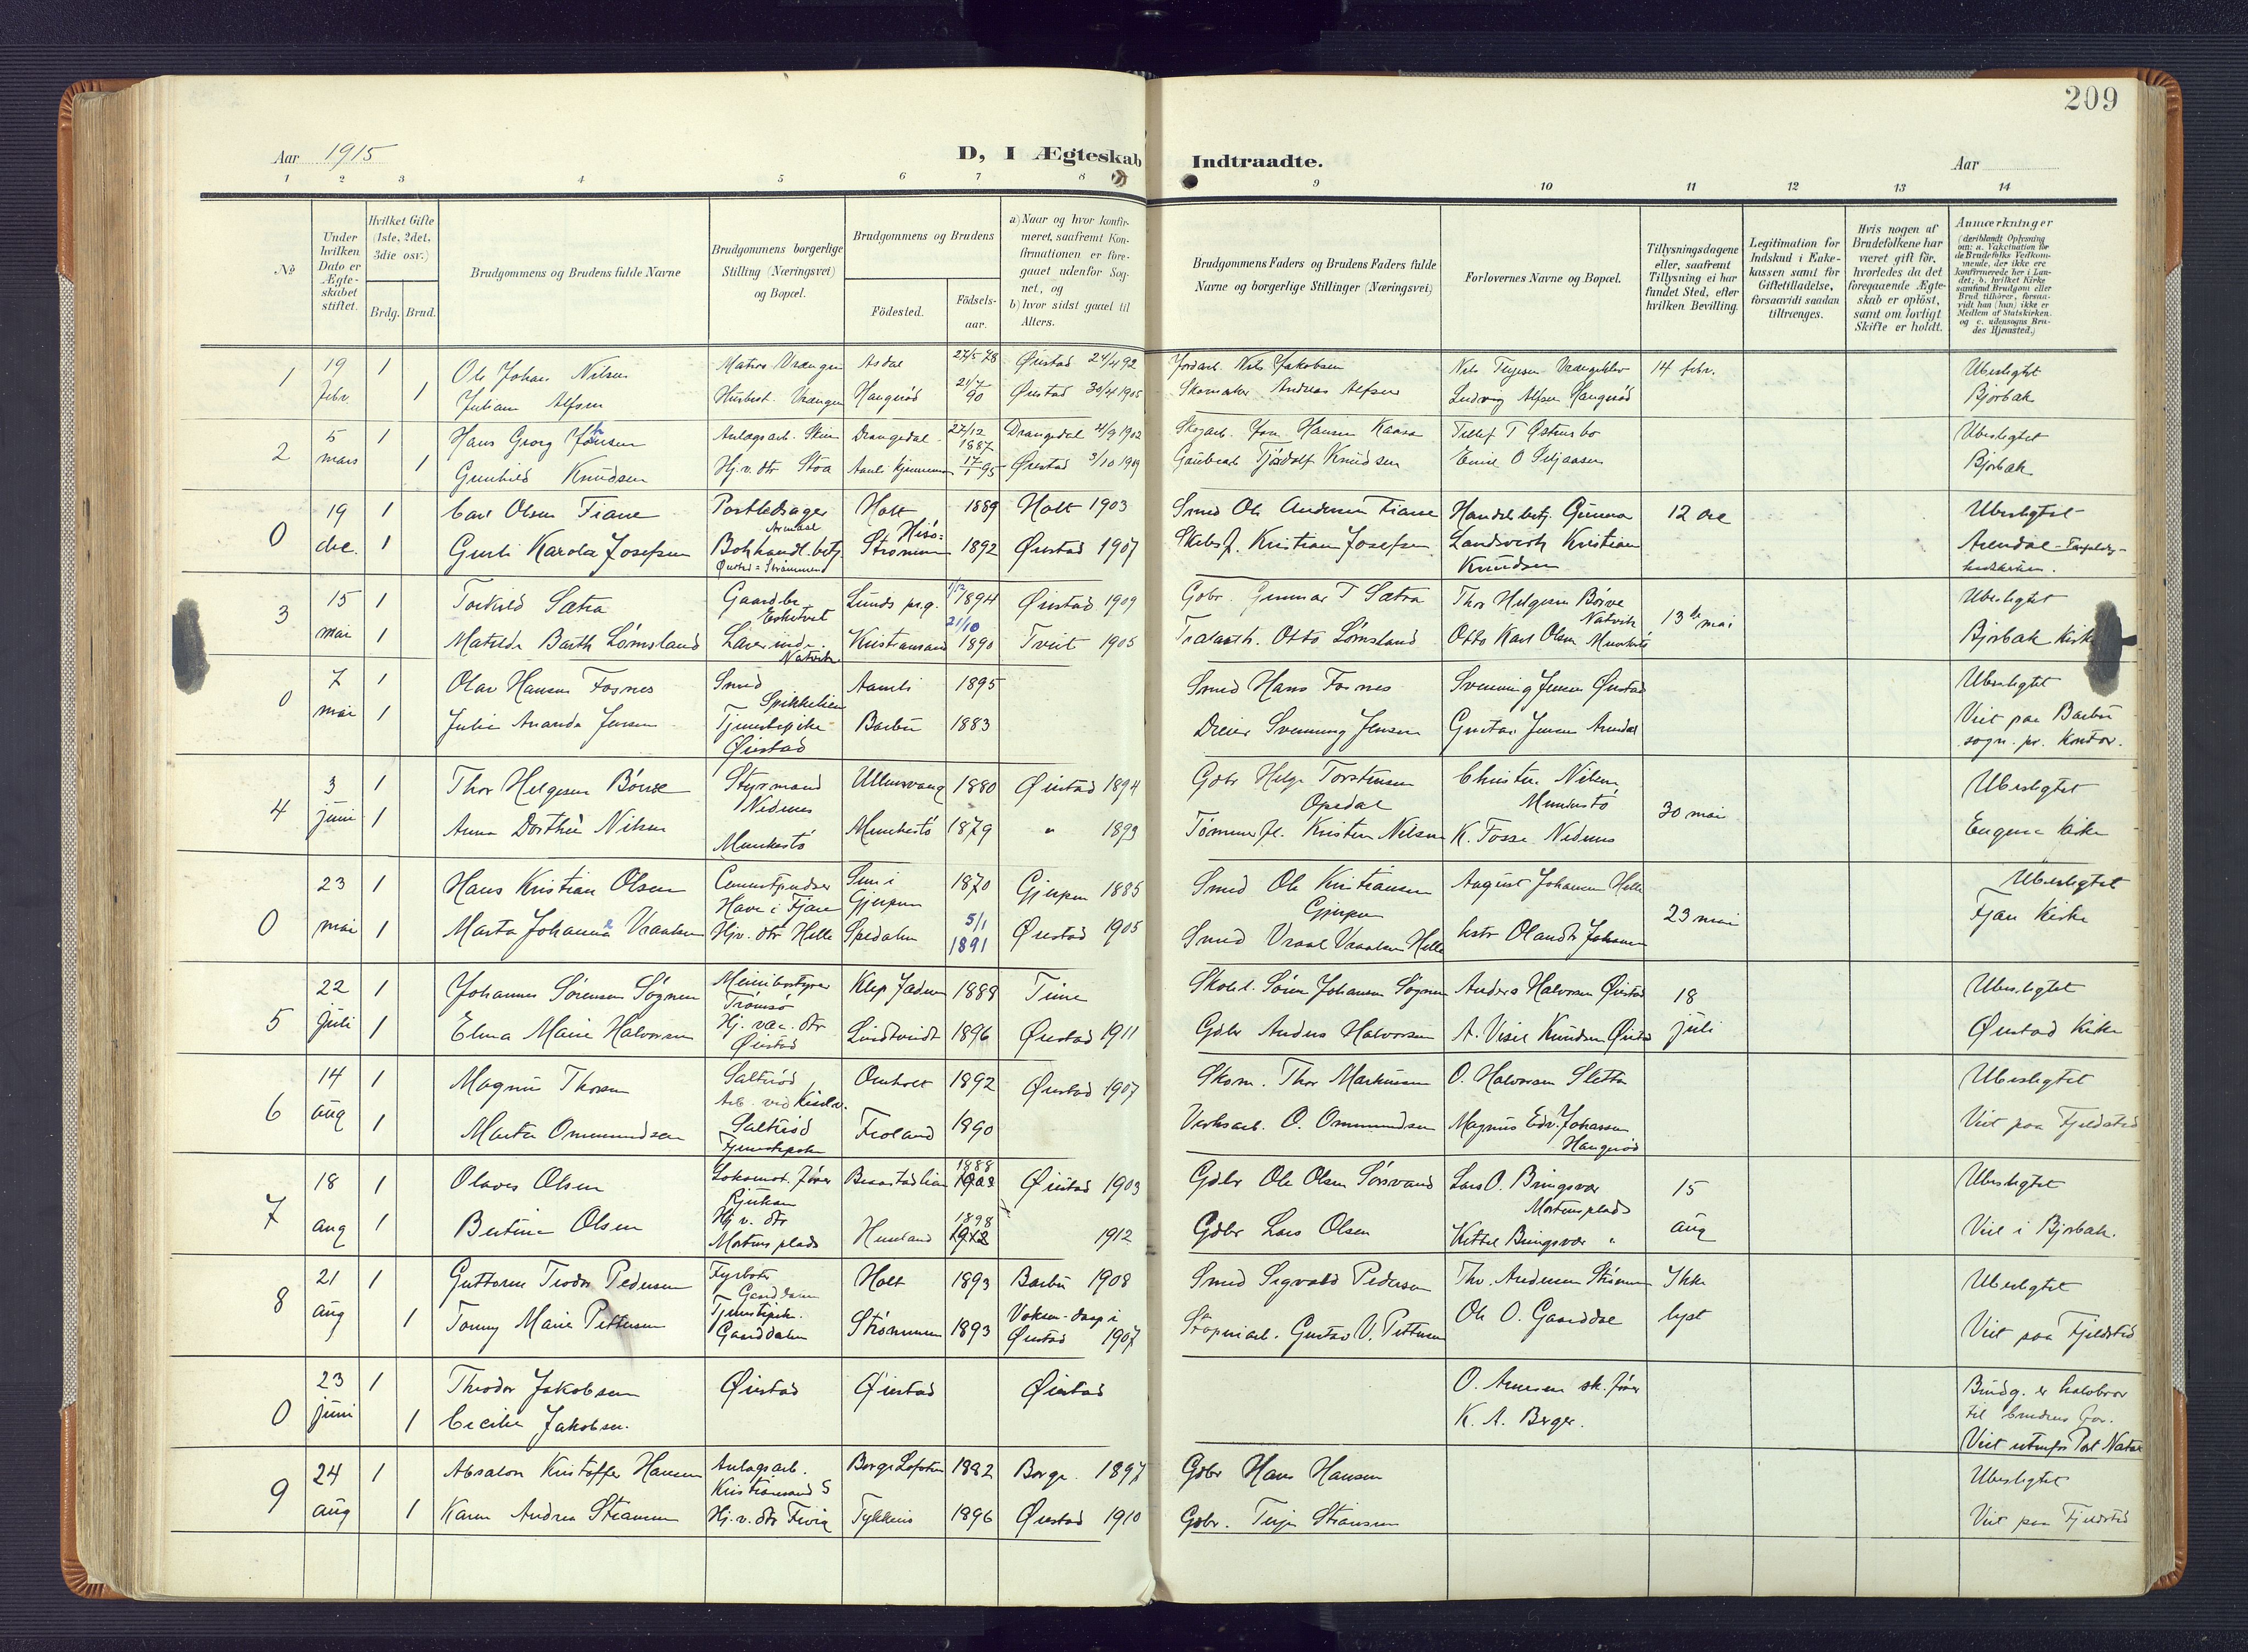 209
Aar 1915
D, I Ægteskab Indtraadte.
Aar
1 2 3 4 5 6 7 8 9 10 11 12 13 14
No
Under hvilken Dato er Ægteskabet stiftet.
Hvilket Gifte (1ste, 2det, 3die osv.)
Brdg. Brud.
Brudgommens og Brudens fulde Navne
Brudgommens borgerlige Stilling (Næringsvei) og Bopæl.
Brudgommens og Brudens
Fødested.
Fødselsaar.
a) Naar og hvor konfirmeret, saafremt Konfirmationen er foregaaet udenfor Sognet, og
b) hvor sidst gaaet til Alters.
Brudgommens Faders og Brudens Faders fulde Navne og borgerlige Stillinger (Næringsvei)
Forlovernes Navne og Bopæl.
Tillysningsdagene eller, saafremt Tillysning ei har fundet Sted, efter hvilken Bevilling.
Legitimation for Indskud i Enkekassen samt for Giftetilladelse, forsaavidt saadan tiltrænges.
Hvis nogen af Brudefolkene har været gift før, hvorledes da det foregaaende Ægteskab er opløst, samt om lovligt Skifte er holdt.
Anmærkninger
(deriblandt Oplysning om: a. Vaksination for de Brudefolks Vedkommende, der ikke ere konfirmerede her i Landet; b. hvilket Kirkesamfund Brudgom eller Brud tilhører, forsaavidt han (hun) ikke er Medlem af Statskirken og c. udensogns Brudes Hjemsted.)
1 19 1 Ole Johan Nilsen Matros Vrængen Asdal 27/5 78 Øiestad 24/4 92 Jordarb. Nils Jakobsen Nils Terjesen 14 febr. Ubeslegtet
febr. 1 Juliane Alfsen Husbest. Vrængen Haugerød 21/7 90 Øiestad 30/4 1905 Skomaker Andreas Alfsen Ludvig Alfsen Haugerød Bjorbæk
2 5 1 Hans Georg Jansen Anlægsarb. Drangedal 27/12 1887 Drangedal 21/9 1902 Skogarb. Jan Hansen Kaasa Tellef T Østensbø Ubeslegtet
mars 1 Gunhild Knudsen Hj.v. dtr Stoa Aamli 17/1 95 Øiestad 3/10 1909 Gaubearb. Tjøstolf Knudsen Emil O Seljaasen Bjorbæk
0 19 1 Carl Olsen Fiane Postledsager Arendal Holt 1889 Holt 1903 Smed Ole Andersen Fiane Handelsbetj. Gunnar 12 dec Ubeslegtet
dec. 1 Gurli Karola Josefsen Bokhandl. betj. Øiestad = Strømmen Hisø = Strømmen 1892 Øiestad 1907 Skibsf. Kristian Josefsen Landsverk Kristian Knudsen Arendal
3 15 1 Torkild Sætra Gaardbr Lunds prg. 1/12 1894 Øiestad 1909 Gbr. Gunnar T Sætra Thor Helgesen Børve Natvik 13de mai Ubeslegtet
mai 1 Matilde Barth Lømsland Lærerinde. Natvik Kristiansand 21/10 1890 Tveit 1905 Otto Lømsland Otto Karl Olsen Bjorbæk Kirke
0 7 1 Olav Hansen Fosnes Smed Spikkelien Aamli 1895 Smed Hans Fosnes Svenning Jensen Øiestad Ubeslegtet
mai 1 Julie Amanda Jensen Tjenestepike Øiestad Barbu 1883 Dreier Svenning Jensen Gustav Jensen Arendal Viet paa Barbu sogn. pr. kontor.
4 3 1 Thor Helgesen Børve Styrmand Nedenes Ullensvang 1880 Øiestad 1894 Gdbr Helge Torstensen Opedal Christen Nilsen, Munkestø 30 mai Ubeslegtet
juni 1 Anna Dorthea Nilsen Munkestø Munkestø 1879 " 1893 Tømmerfl. Kristen Nilsen K. Fosse Nedenes Engene kirke
0 23 1 Hans Kristian Olsen Cementpudser Have i Fjære Gjerpen 1870 Gjerpen 1885 Smed Ole Kristiansen Gjerpen August Johansen Helle 23 mai Ubeslegtet
mai 1 Marta Johanne Vraalsen Hjv. dtr Helle Spedalen 5/1 1891 Øiestad 1905 Smed Vraal Vraalsen Helle Johansen Fjære Kirke
5 22 1 Johannes Sørensen Søgnen Meieribestyrer Tromsø Klep Jæderen 1889 Time Skolel. Søren Johansen Søgnen Anders Halvorsen Øiestad 18 Ubeslegtet
juli 1 Elma Marie Halvorsen Hj. vær. dtr Øiestad Lindtveidt 1896 Øiestad 1911 Gdbr Anders Halvorsen A. Knudsen Øiestad juli Øiestad Kirke
6 14 1 Magnus Thorsen Saltrød Arb. ved Omholt 1892 Øiestad 1907 Skom. Thor Markussen O. Halvorsen Sletta Ubeslegtet
aug 1 Marta Ommundsen Saltrød Tjenestepike Froland 1890 Verksarb. O. Ommundsen Magnus Edv. Johansen Haugerød Viet paa Fjeldsted
7 18 1 Olaves Olsen Lokomot. fører Rjukan 1888 Øiestad 1903 Gdbr Ole Olsen Sørsvand Lars O. Bringsvær Mortensplads 15 Ubeslegtet
aug 1 Bertine Olsen Hj v. dtr Mortensplads 1898 1912 Gdbr Lars Olsen Kittel Bringsvær " aug Viet i Bjorbæk.
8 21 1 Guttorm Teodor Pedersen Fyrbøter Gaarddalen Holt 1893 Barbu 1908 Smed Sigvald Pedersen Thv. Andersen Strømmen Ikke Ubeslegtet
aug 1 Tonny Marie Pettersen Tjenestepike. Gaarddalen Strømmen 1893 Voksen-daap i Øiestad 1907 Gustav V. Pettersen Ole O. Gaarddal lyst Viet paa Fjeldsted
0 23 1 Theodor Jakobsen Øiestad Øiestad Øiestad O. Arnesen sk. fører Brudg. er halvbror
juni 1 Cecilie Jakobsen. K. A. Berger. til brudens far.
Viet utenfor Port Natal
9 24 1 Absalon Kristoffer Hansen Anlægsarb. Kristiansand S Borge Lofoten 1882 Borge. 1897 Gdbr Hans Hansen Ubeslegtet
aug 1 Karen Andrea Stiansen Hj.v. dtr Fevig 1896 Øiestad 1910 Gdbr. Terje Stiansen Viet paa Fjeldsted